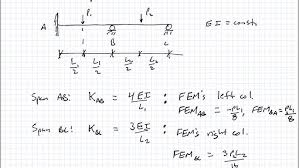 P₁ P₂
A EI = const.
1 B C
L₁/2 L₁/2 L₂/2 L₂/2
Span AB: K_AB = 4EI/L₁ : FEM's left col.
FEM_AB = -PL₁/8, FEM_BA = PL₁/8
Span BC: K_BC = 3EI/L₂ : FEM's right col.
FEM_BC = 3PL₂/16